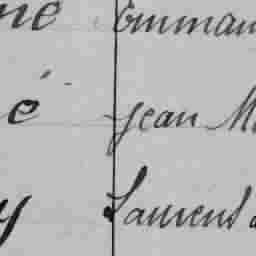 ne Emman
é Jean M
y Laurent